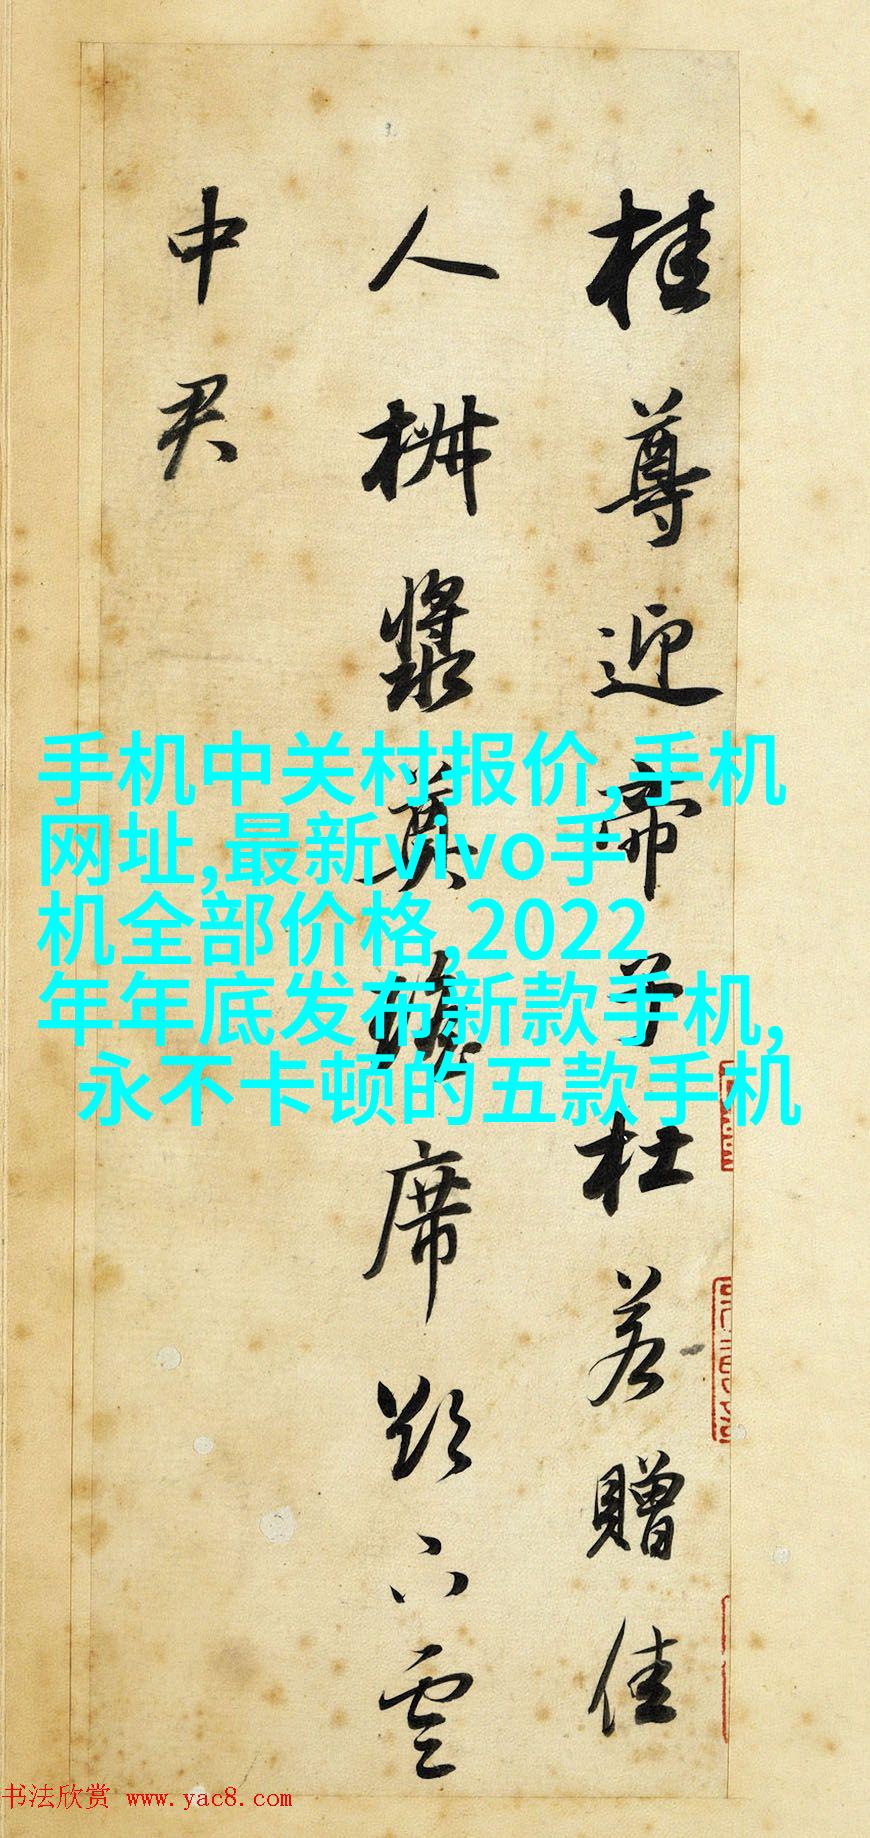 桂尊迎帝子杜若贈佳
人椒漿奠瑤席欲下雲
中君
手机中关村报价,手机
网址,最新vivo手
机全部价格,2022
年年底发布新款手机,
永不卡顿的五款手机
书法欣赏 www.yac8.com